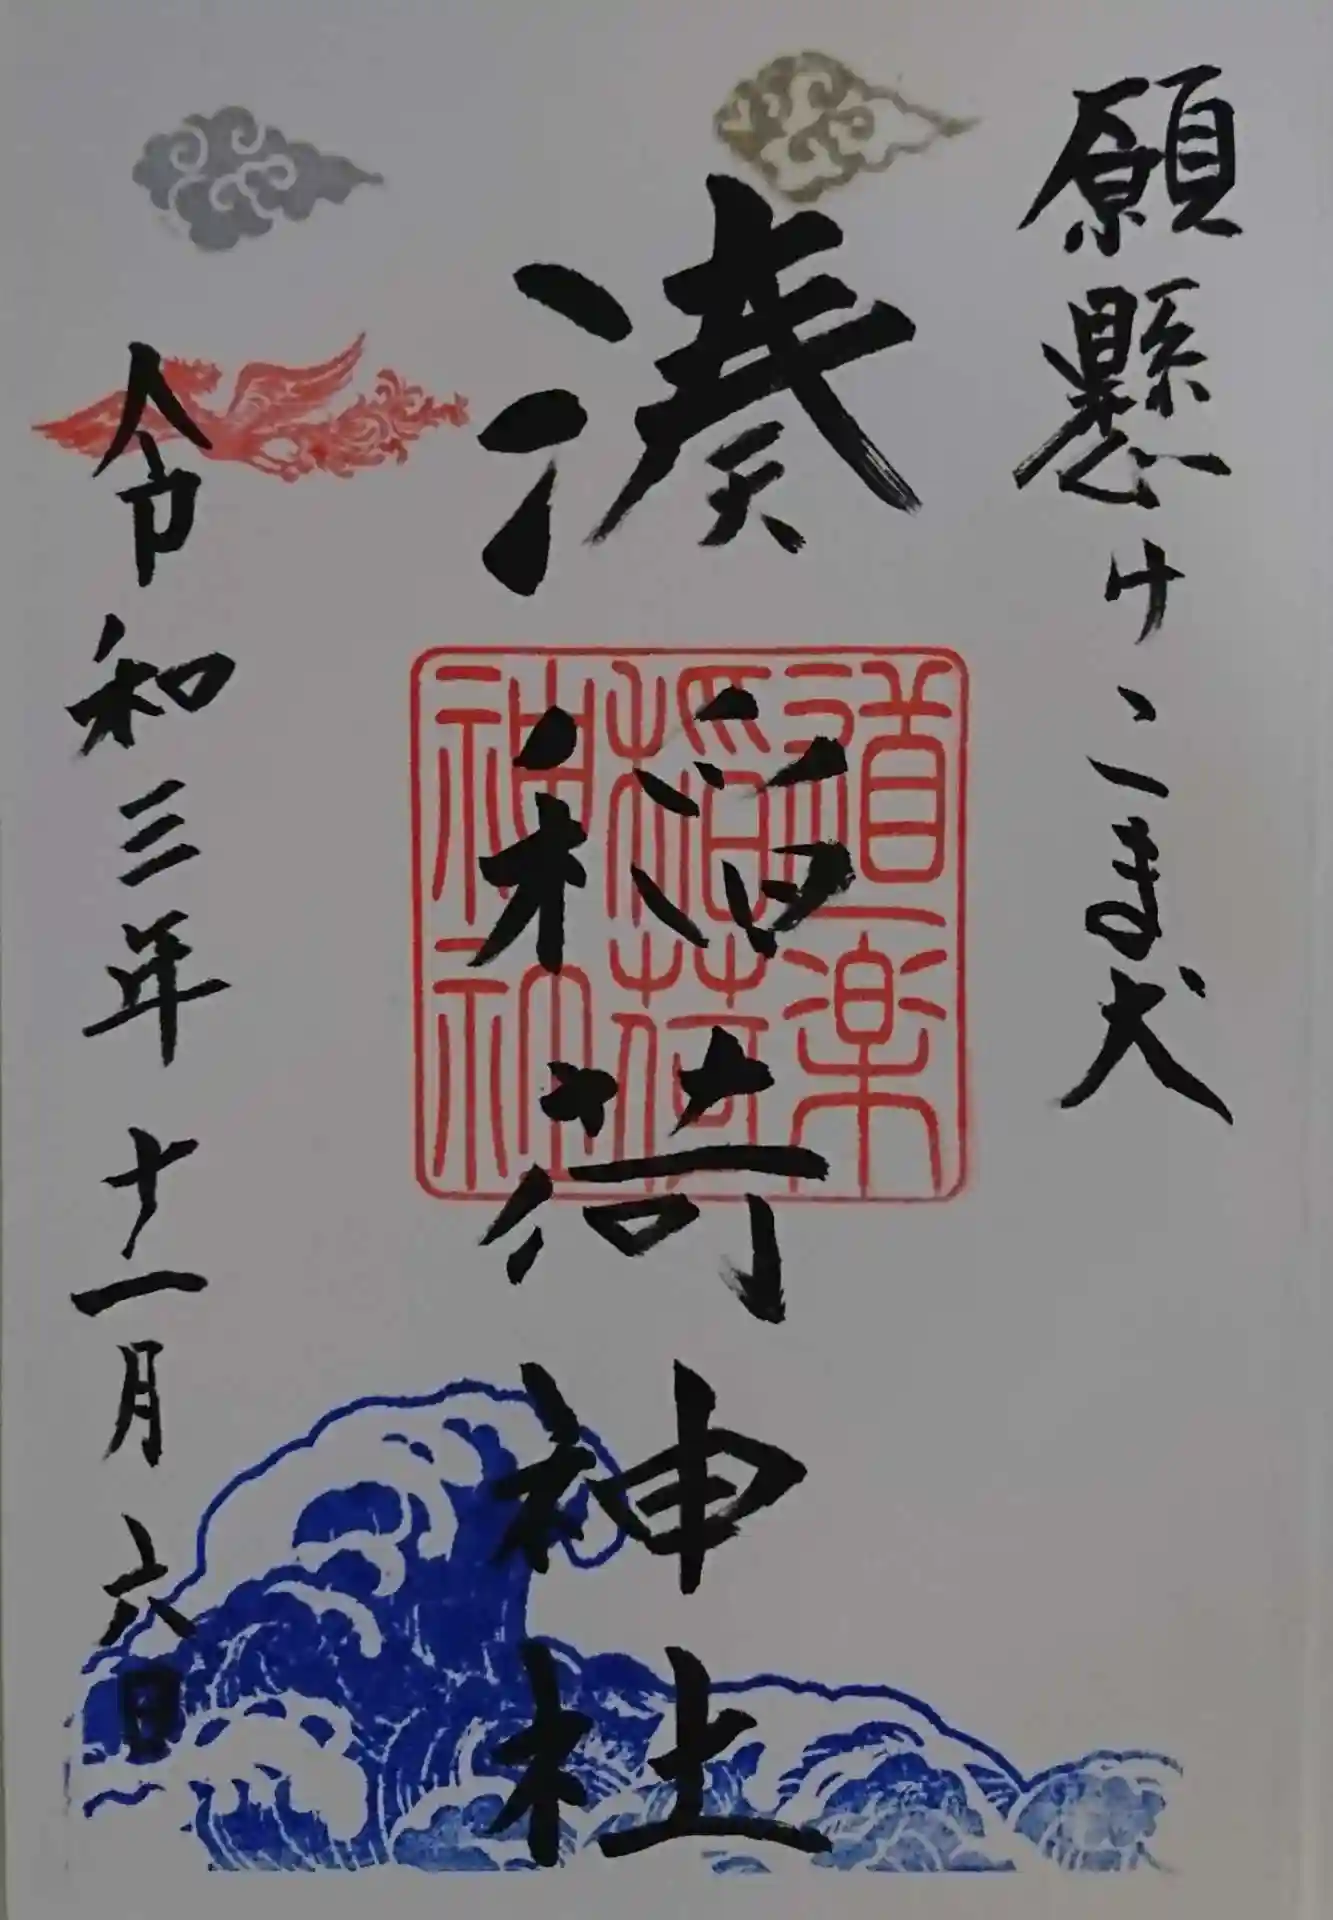 願懸けこま犬
湊稲荷神社
道楽
稲荷
神社
令和三年十一月六日